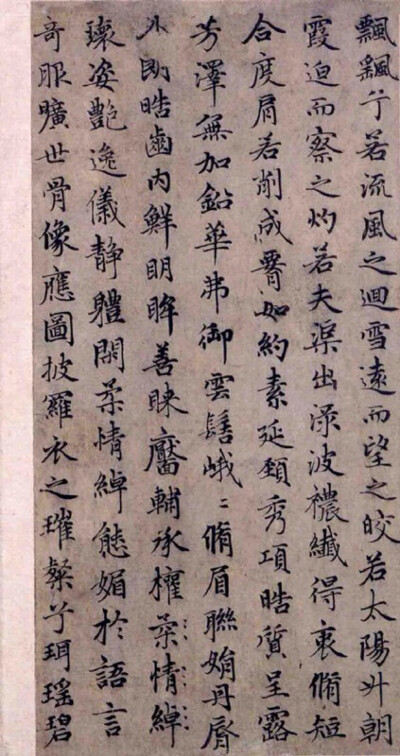 飄颻兮若流風之迴雪遠而望之皎若太陽升朝
霞迫而察之灼若夫渠出淥波襛纖得衷脩短
合度肩若削成腰如約素延頸秀項皓質呈露
芳澤無加鉛華弗御雲髻峨〻脩眉聯娟丹脣
外朗皓齒內鮮明眸善睞靨輔承權柔情綽
瓌姿艷逸儀靜體閑柔情綽態媚於語言
奇服曠世骨像應圖披羅衣之璀粲兮珥瑤碧